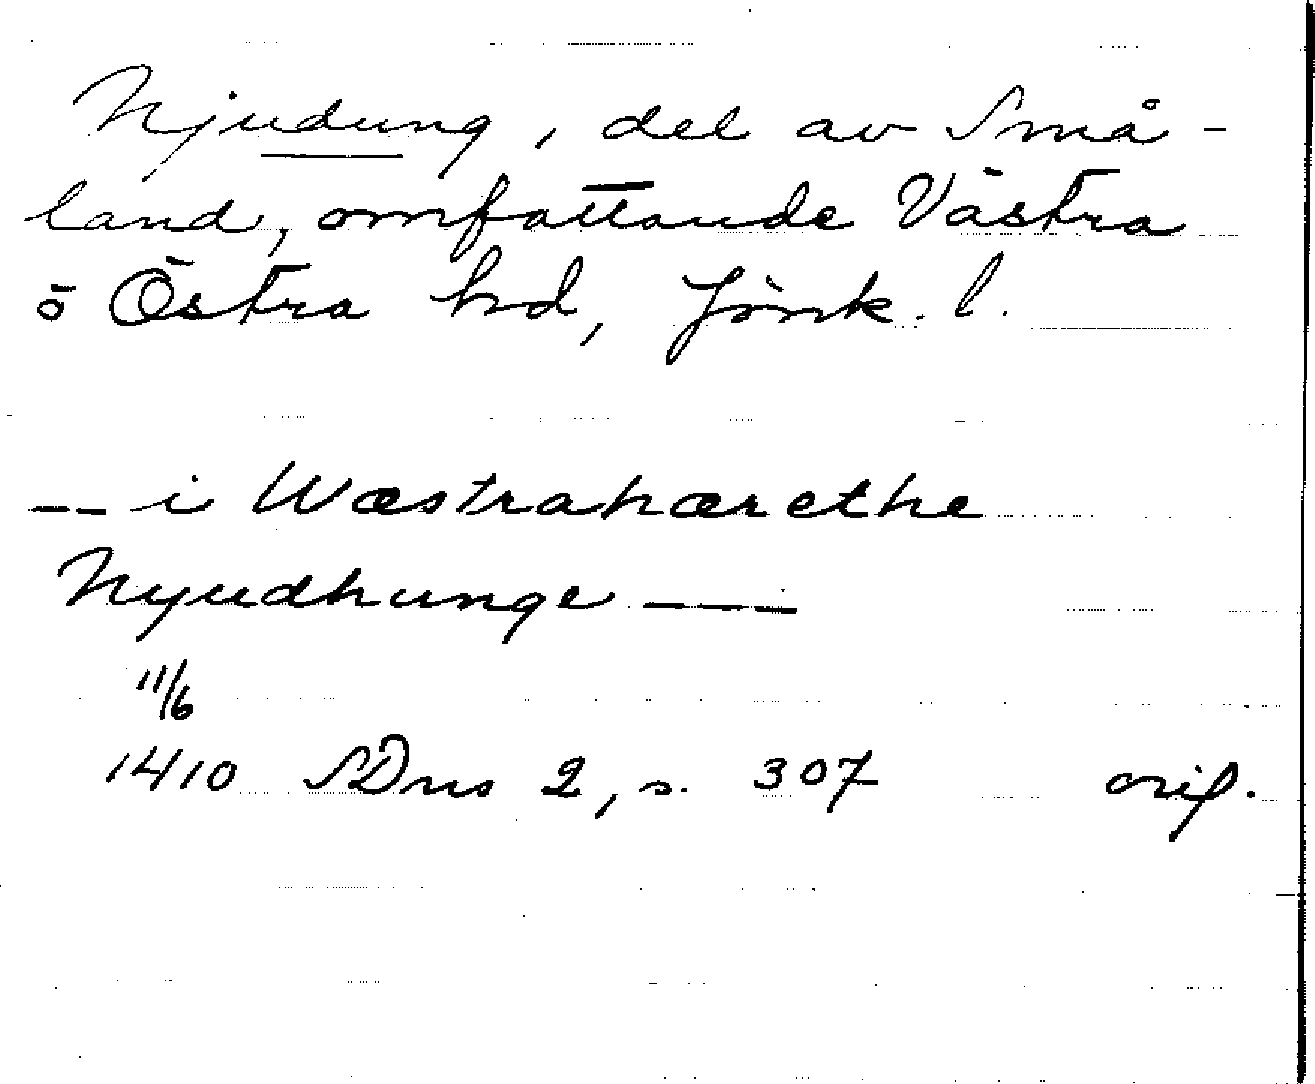 Njudung, del av Små-
land, omfattande Västra
o Östra hd, Jönk. l.
-- i Wæstrahærethe
Nyudhunge ---
11/6
1410 SDns 2, s. 307 orig.